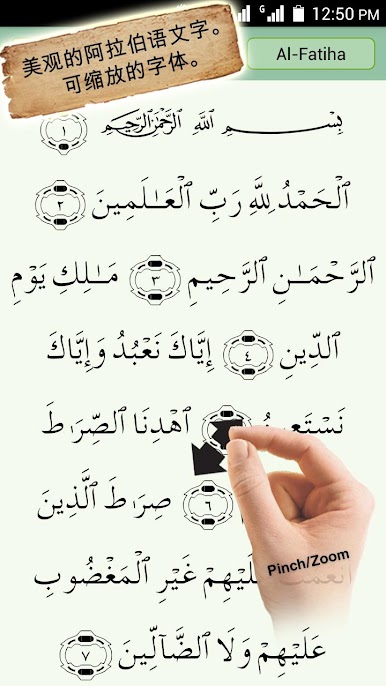 12:50 PM
美观的阿拉伯语文字。
可缩放的字体。
Al-Fatiha
بِسْمِ ٱللَّهِ ٱلرَّحْمَٰنِ ٱلرَّحِيمِ ١
ٱلْحَمْدُ لِلَّهِ رَبِّ ٱلْعَـٰلَمِينَ ٢
ٱلرَّحْمَـٰنِ ٱلرَّحِيمِ ٣ مَـٰلِكِ يَوْمِ
ٱلدِّينِ ٤ إِيَّاكَ نَعْبُدُ وَإِيَّاكَ
ٱهْدِنَا ٱلصِّرَٰطَ
٦ صِرَٰطَ ٱلَّذِينَ
عَلَيْهِمْ غَيْرِ ٱلْمَغْضُوبِ
عَلَيْهِمْ وَلَا ٱلضَّآلِّينَ ٧
Pinch/Zoom